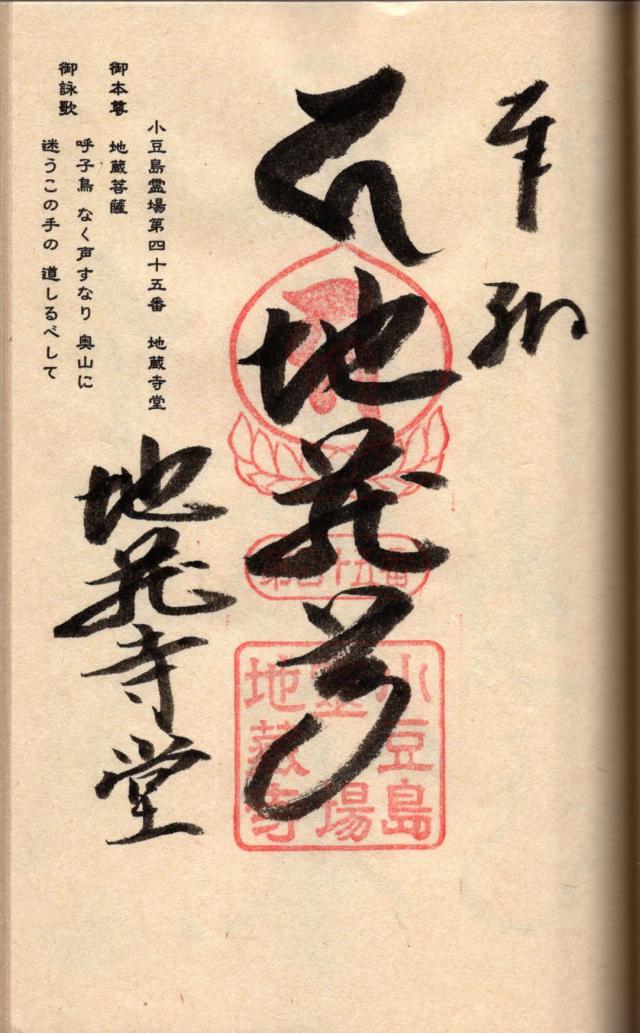 奉納
地蔵
第四十五番
小豆島
霊場
地蔵寺
小豆島霊場第四十五番 地蔵寺堂
御本尊 地蔵菩薩
御詠歌 呼子鳥 なく声すなり 奥山に
迷うこの手の 道しるべして
地蔵寺堂